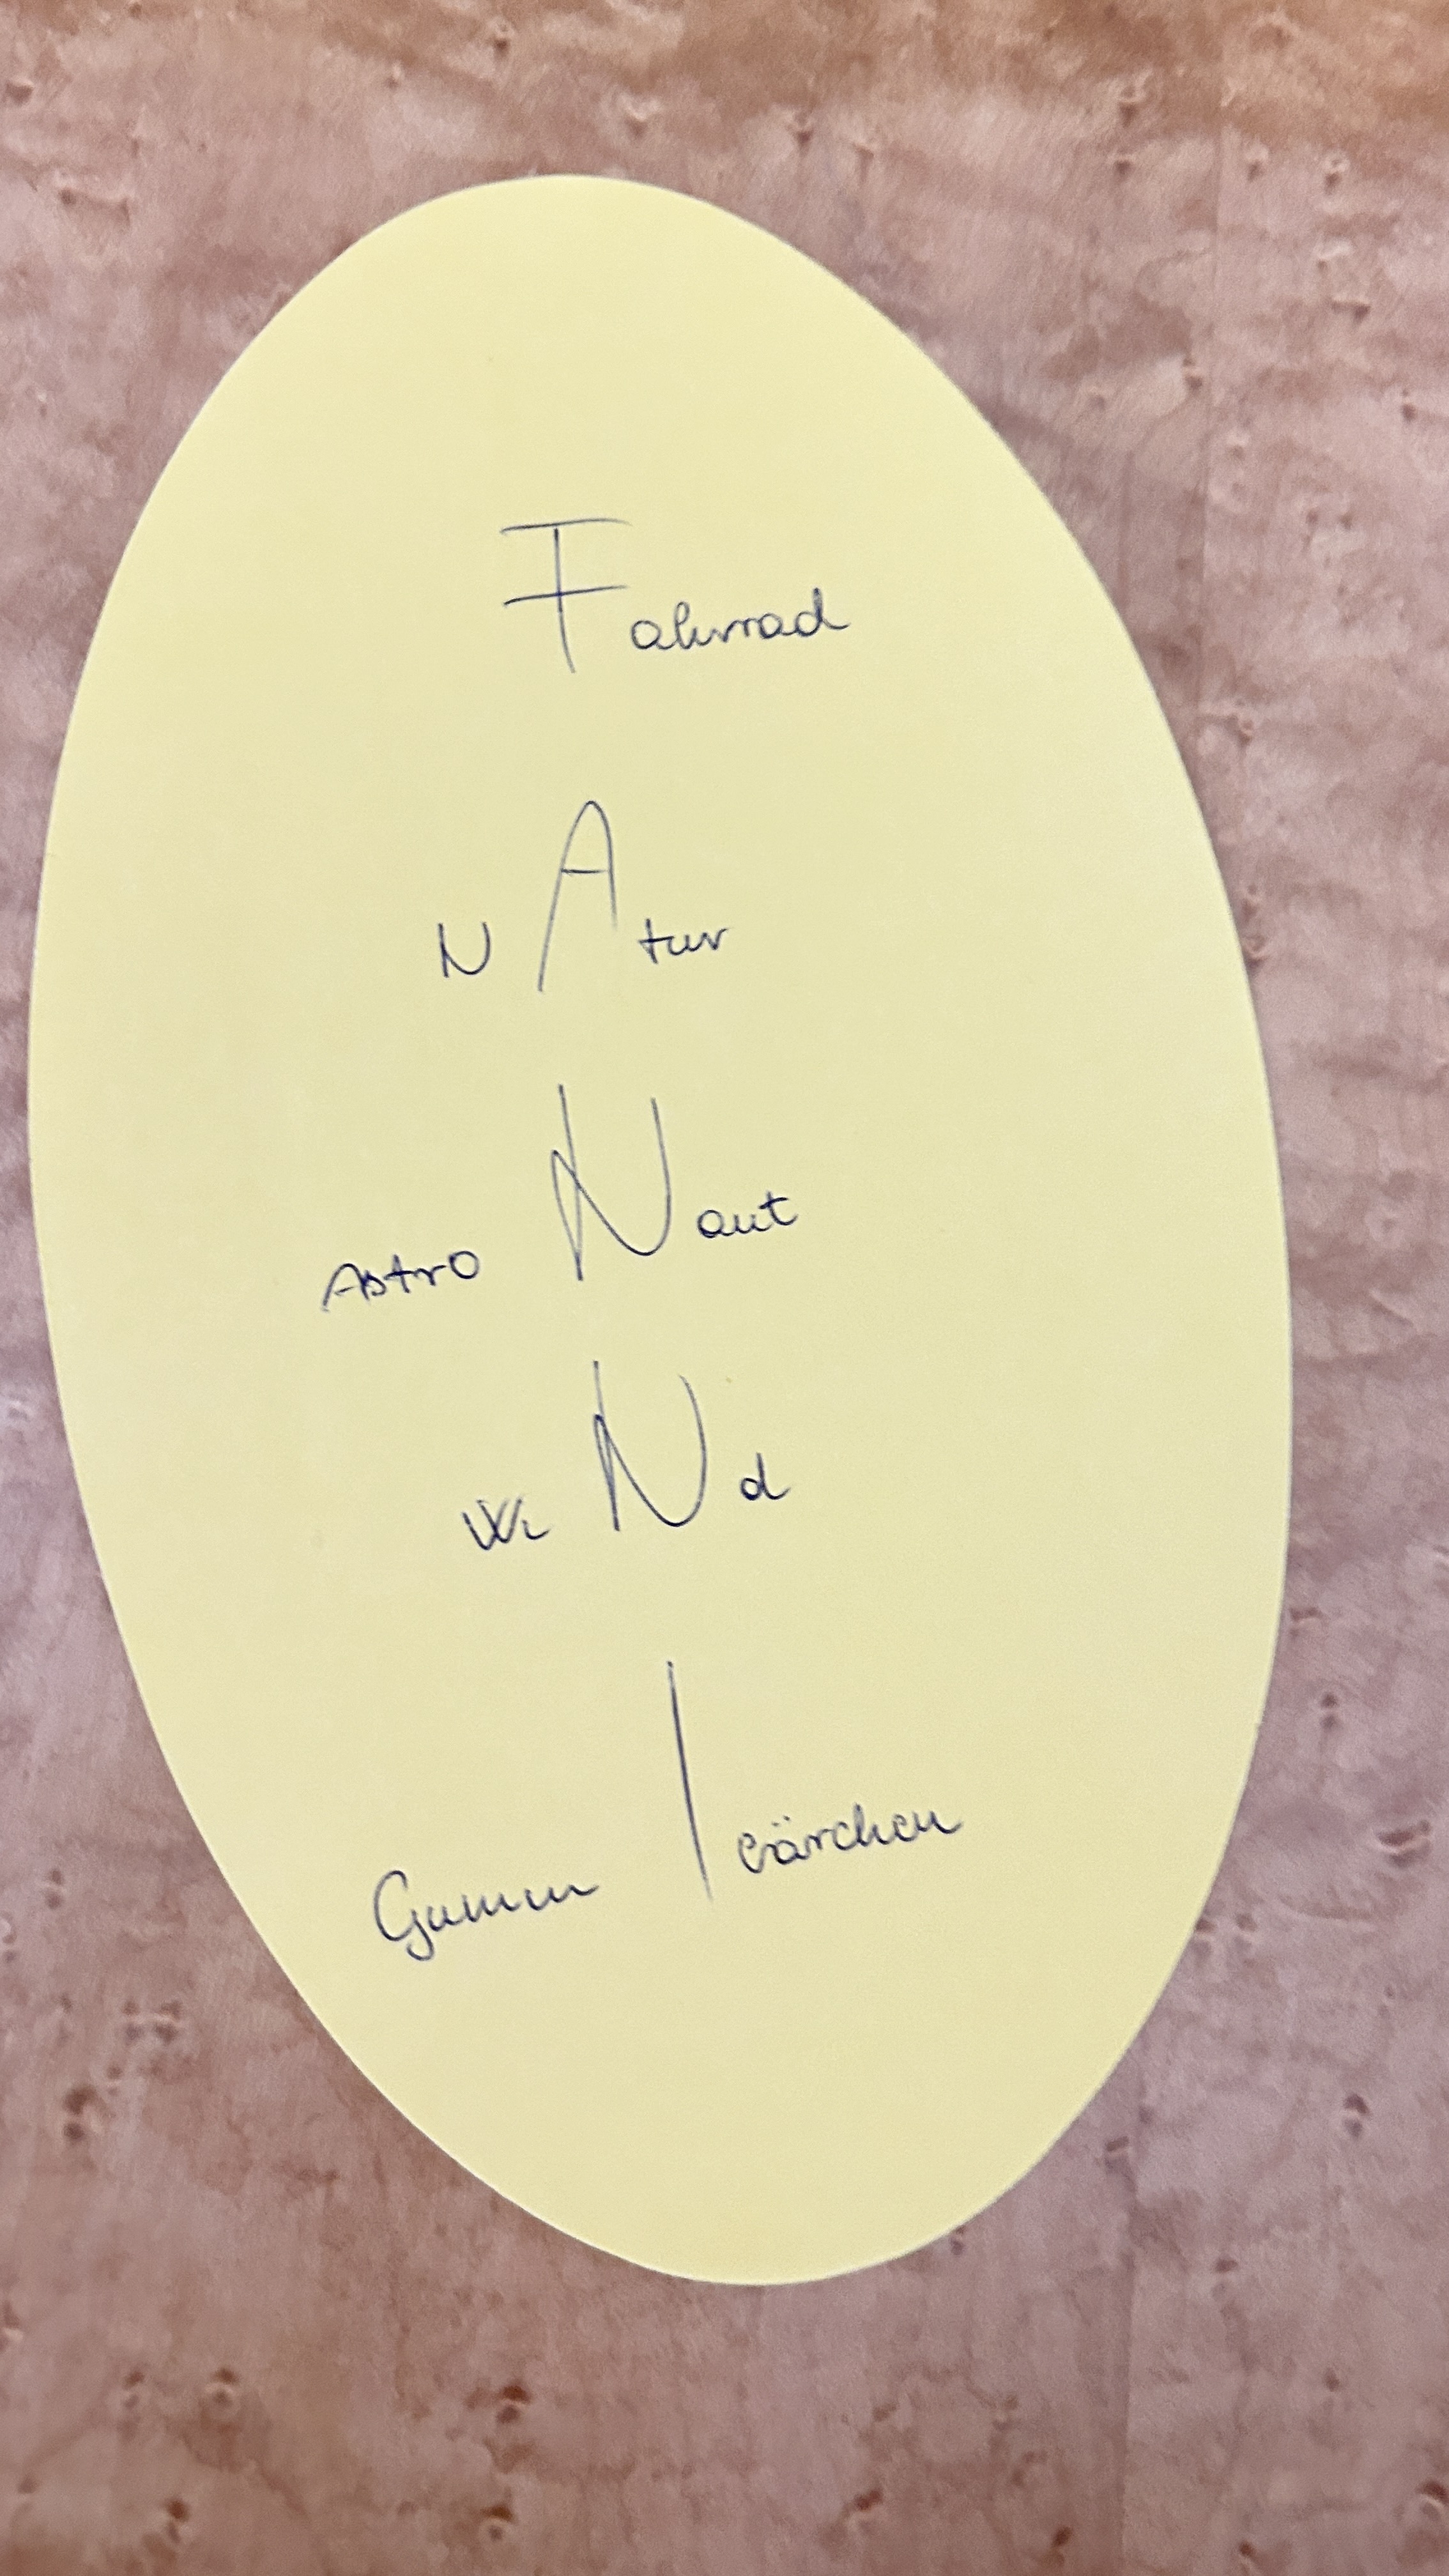 Fahrrad
NAtur
AstroNaut
WiNd
GummIbärchen